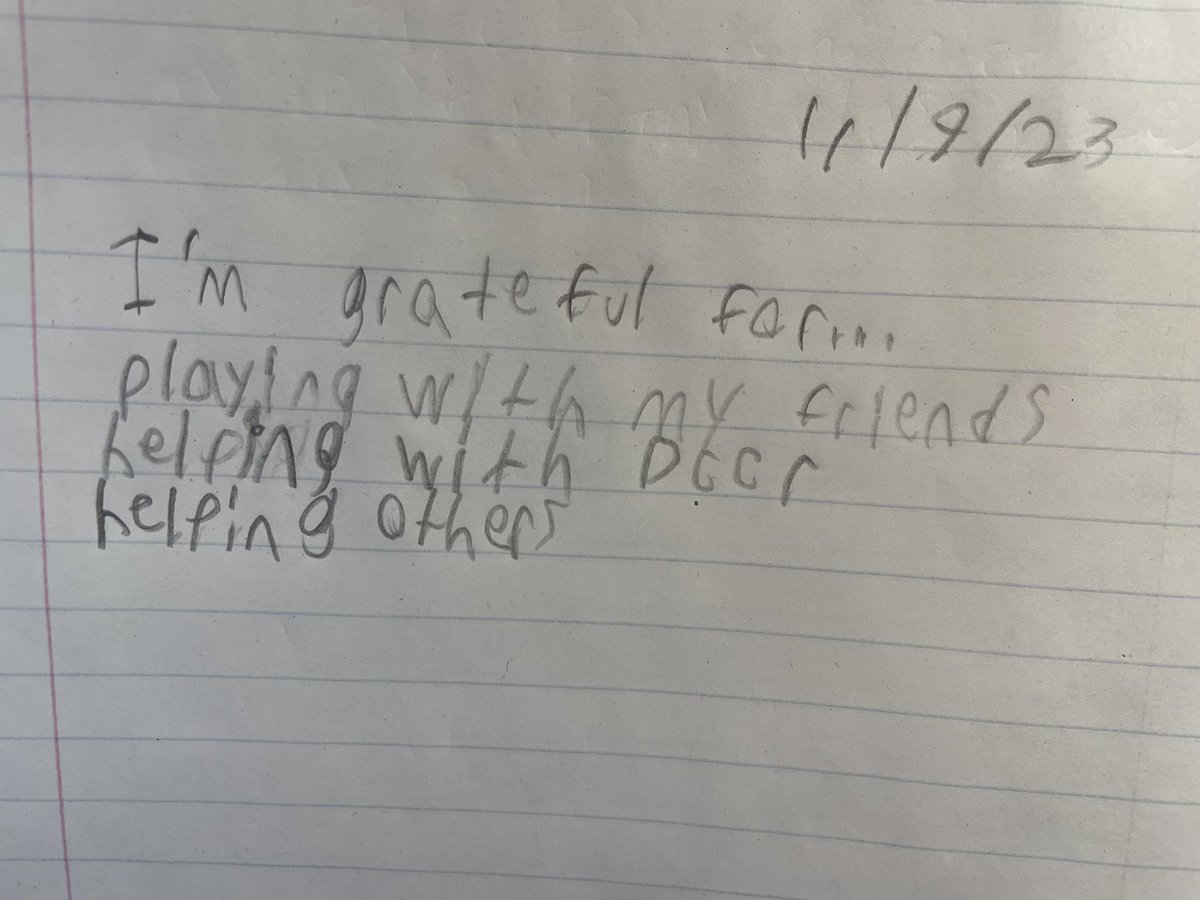 11/9/23
I'm grateful for...
playing with my friends
helping with
helping others